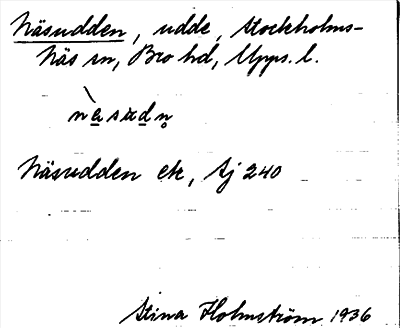 Näsudden, udde, Stockholms-
Näs sn, Bro hd, Upps. l.
nèsudn̥
Näsudden ek, Aj 240
Stina Holmström 1936